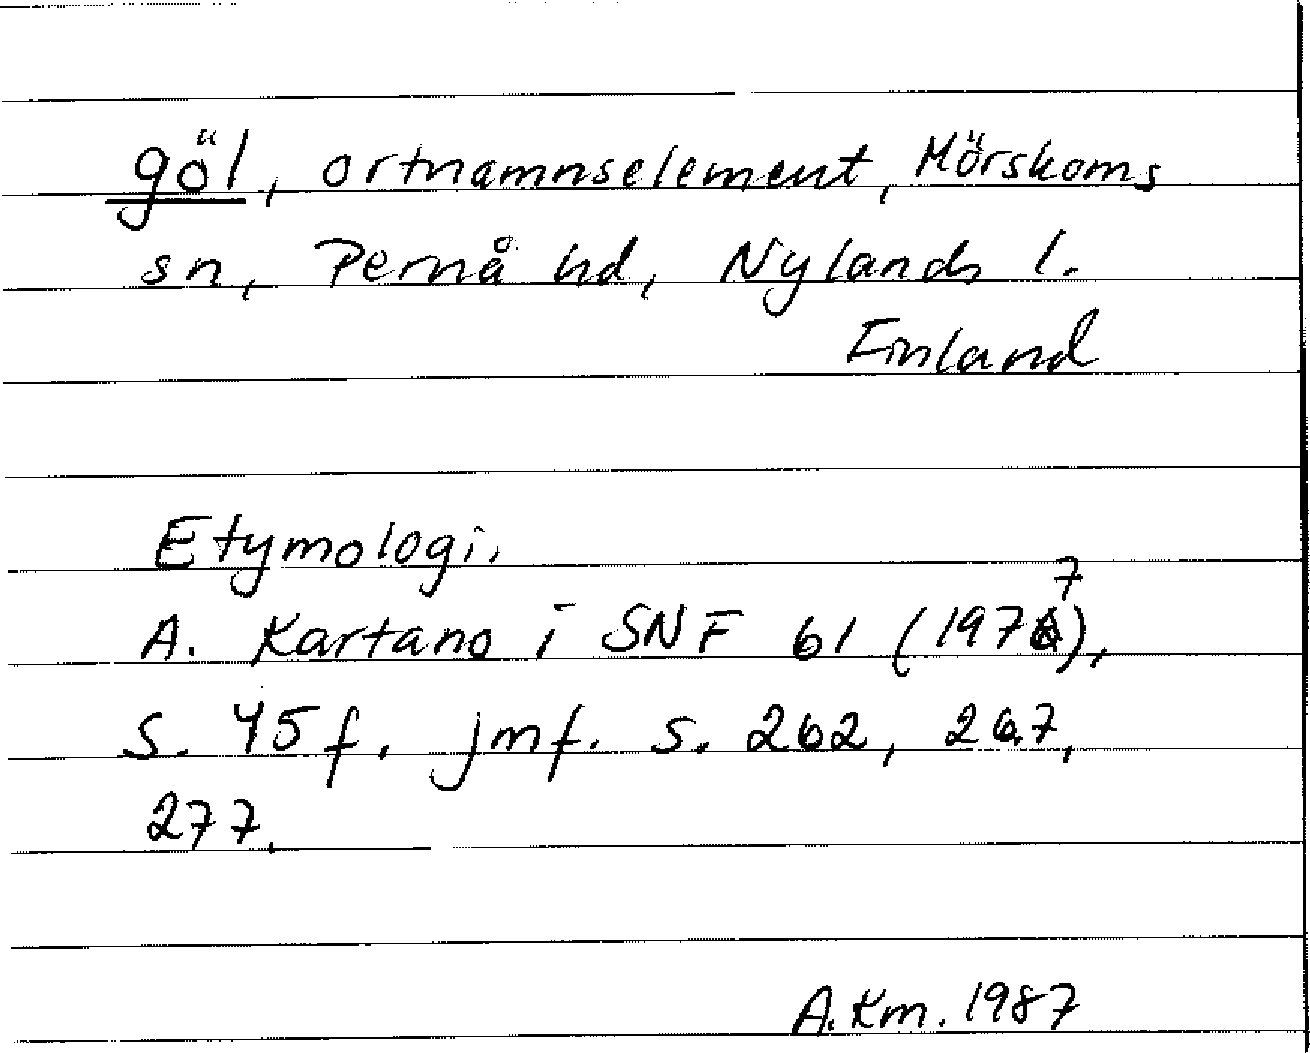 göl, ortnamnselement, Mörskoms
sn, Pernå hd, Nylands l.
Finland
Etymologi.
A. Kartano i SNF 61 (1977),
s. 45 f. jmf. s. 262, 267,
277.
A. Km. 1987